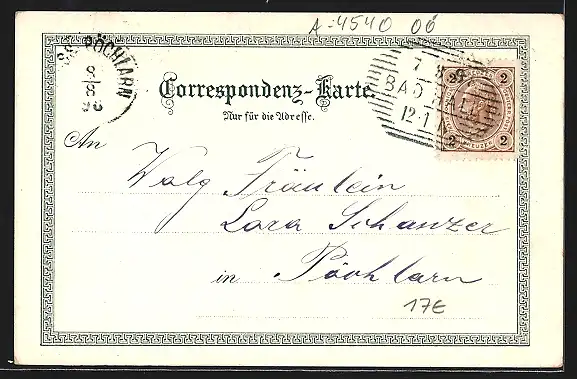 A-4540 06
PÖCHLARN
8/8
96
7 8
BAD HALL
12·1 N
2 2
2 KREUZER 2
Correspondenz-Karte.
Nur für die Adresse.
An
Wolg Fräulein
Lora Schanzer
in Pöchlarn
17€